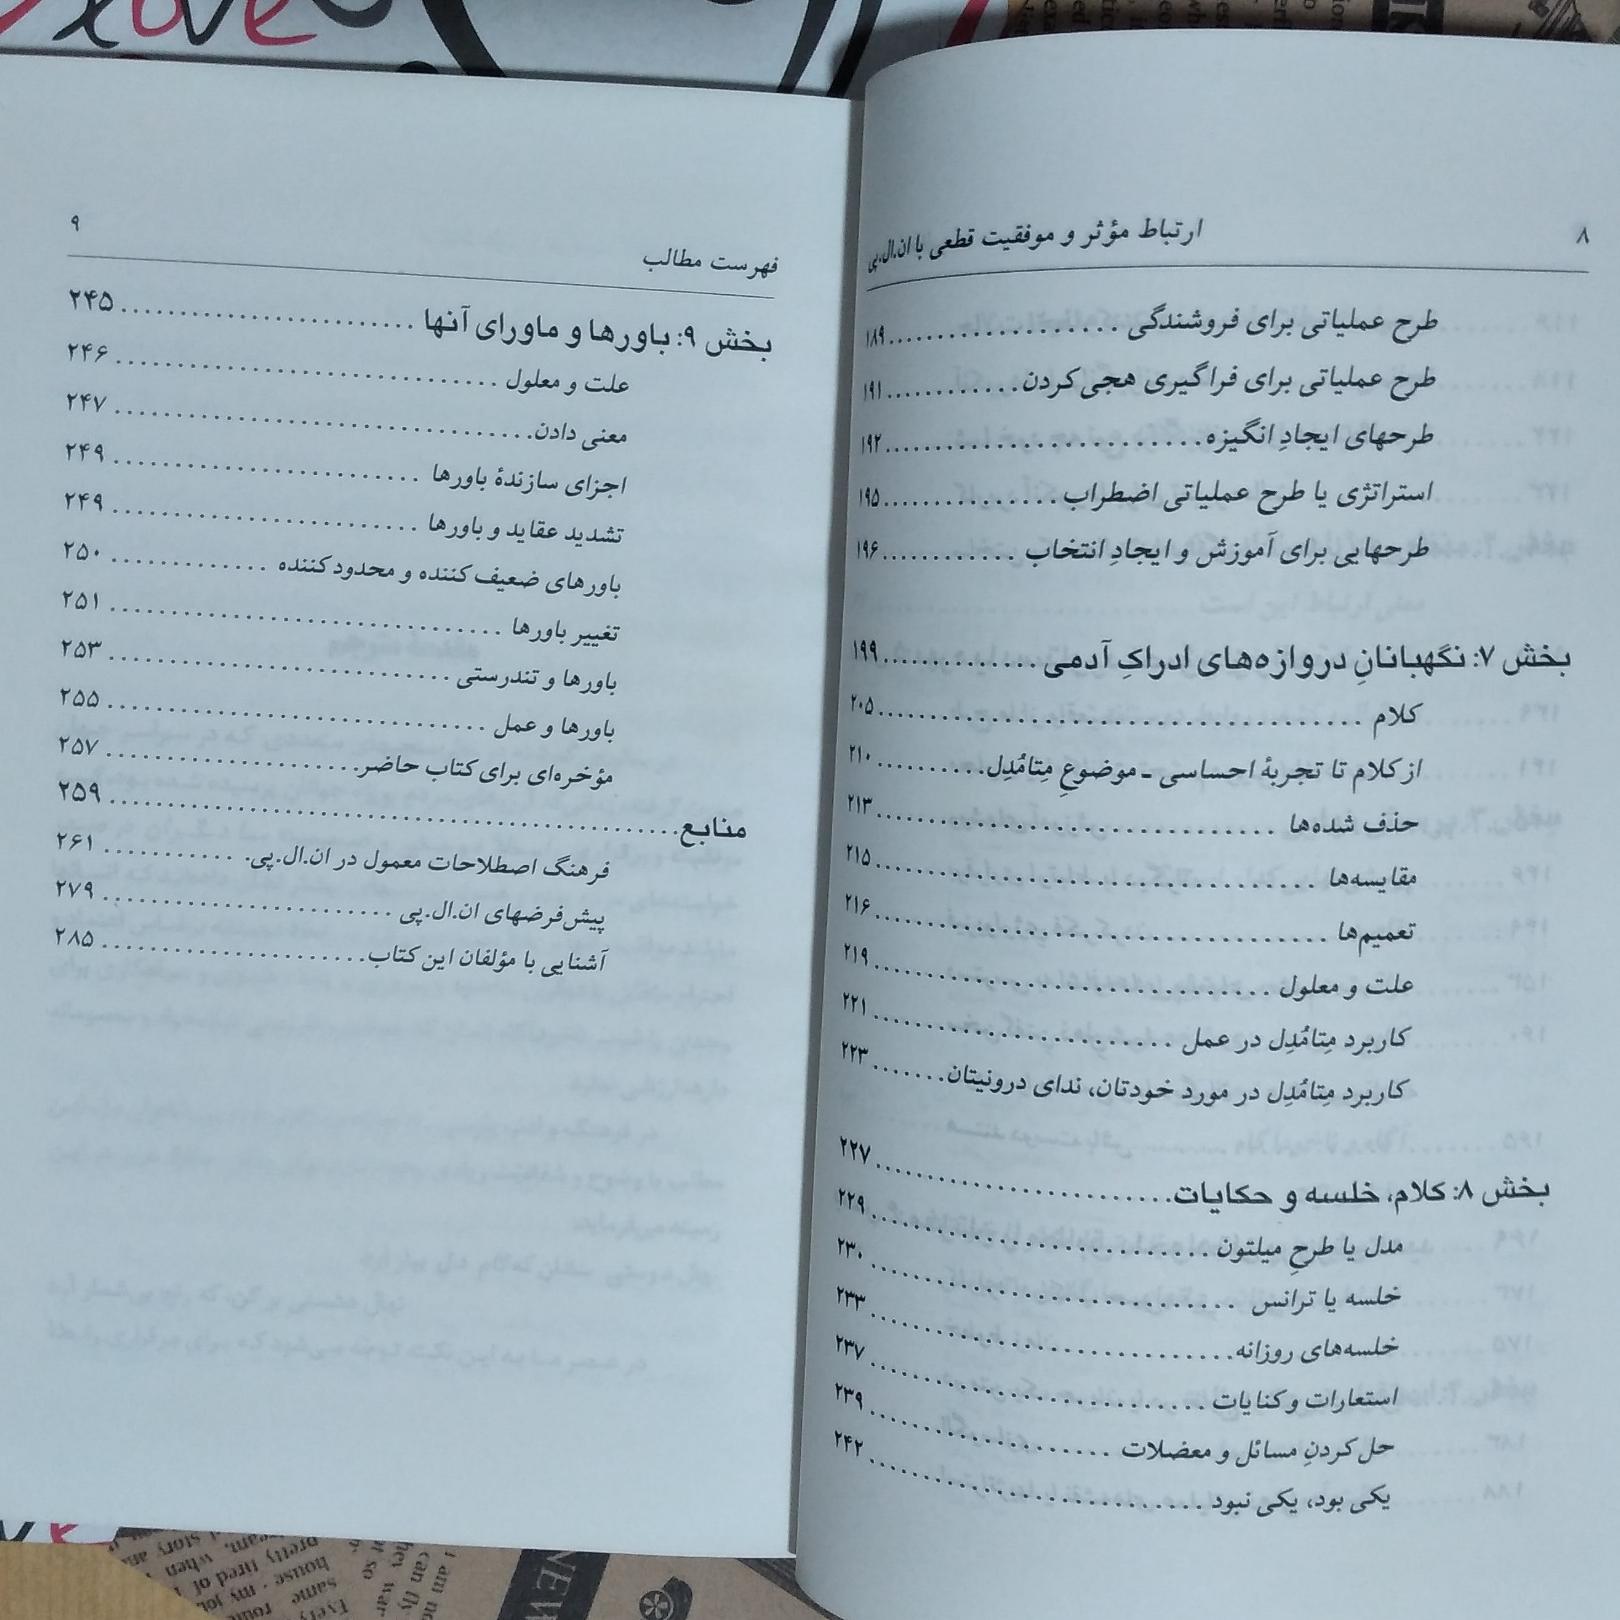 ۸
ارتباط مؤثر و موفقیت قطعی با ان.ال.پی
طرح عملیاتی برای فروشندگی ۱۸۹
طرح عملیاتی برای فراگیری هجی کردن ۱۹۱
طرحهای ایجادِ انگیزه ۱۹۲
استراتژی یا طرح عملیاتی اضطراب ۱۹۵
طرحهایی برای آموزش و ایجادِ انتخاب ۱۹۶
بخش ۷: نگهبانانِ دروازه‌های ادراکِ آدمی ۱۹۹
کلام ۲۰۵
از کلام تا تجربهٔ احساسی ـ موضوعِ مِتامُدِل ۲۱۰
حذف شده‌ها ۲۱۳
مقایسه‌ها ۲۱۵
تعمیم‌ها ۲۱۶
علت و معلول ۲۱۹
کاربرد مِتامُدِل در عمل ۲۲۱
کاربرد مِتامُدِل در مورد خودتان، ندای درونیتان ۲۲۳
بخش ۸: کلام، خلسه و حکایات ۲۲۷
مدل یا طرحِ میلتون ۲۲۹
خلسه یا ترانس ۲۳۰
خلسه‌های روزانه ۲۳۳
استعارات و کنایات ۲۳۷
حل کردنِ مسائل و معضلات ۲۳۹
یکی بود، یکی نبود ۲۴۲
فهرست مطالب
۹
بخش ۹: باورها و ماورای آنها ۲۴۵
علت و معلول ۲۴۶
معنی دادن ۲۴۷
اجزای سازندهٔ باورها ۲۴۹
تشدید عقاید و باورها ۲۴۹
باورهای ضعیف‌کننده و محدودکننده ۲۵۰
تغییر باورها ۲۵۱
باورها و تندرستی ۲۵۳
باورها و عمل ۲۵۵
مؤخره‌ای برای کتاب حاضر ۲۵۷
منابع ۲۵۹
فرهنگ اصطلاحات معمول در ان.ال.پی. ۲۶۱
پیش‌فرضهای ان.ال.پی ۲۷۹
آشنایی با مؤلفان این کتاب ۲۸۵
love